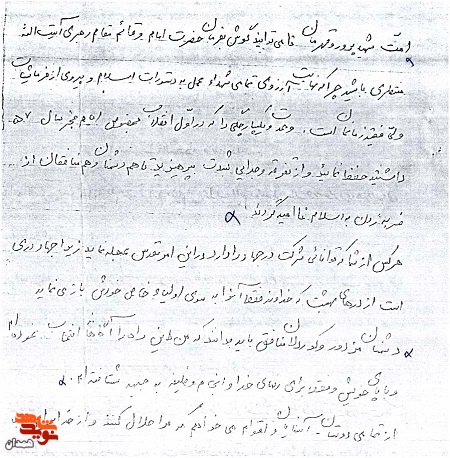 امت شهید پرور و قهرمان تا می توانید گوش بفرمان حضرت امام و قائم مقام رهبری آیت الله
منتظری باشید چرا که نهایت آرزوی تمامی شهداء عمل به دستورات اسلام و پیروی از فرمایشات
ولی فقیه زمان است. وحدت و یکپارچگی را که در اول انقلاب بخصوص ایام محرم سال ۵۷
داشتید حفظ نمائید و از تفرقه و جدایی بشدت بپرهیزید تا هم دشمنان و هم منافقان از
ضربه زدن به اسلام نا امید گردند
هر کس از شما که توانائی شرکت در جهاد را دارد در این امر مقدس عجله نماید زیرا جهاد دری
است از درهای بهشت که خداوند فقط آنرا به روی اولیاء خاص خودش باز می نماید
دشمنان مزدور و کوردلان منافق باید بدانند که من این راه را آگاهانه انتخاب نموده ام
و با پای خویش و فقط برای رضای خدا و انجام وظیفه به جبهه شتافته ام.
از تمامی دوستان آشنایان و اقوام می خواهم که مرا حلال کنند و از خدا برای
نوید
همدان